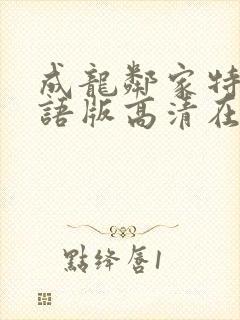 成龍鄰家特
語版高清在
點绛唇1